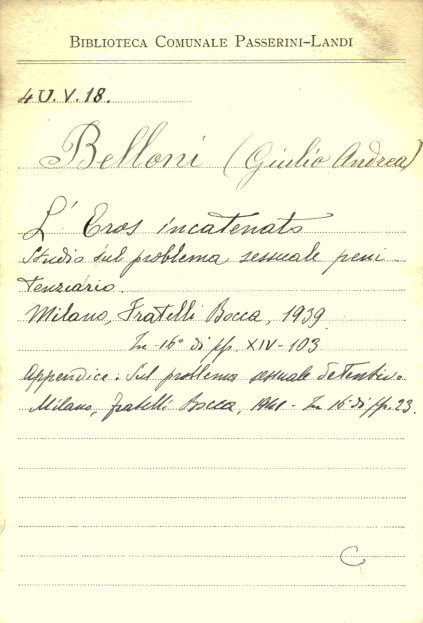 BIBLIOTECA COMUNALE PASSERINI-LANDI
4U.V.18.
Belloni (Giulio Andrea)
L'Eros incatenato
Studio sul problema sessuale peni-
tenziario.
Milano, Fratelli Bocca, 1939
In-16° di pp. XIV-103
Appendice: Sul problema sessuale detentivo.
Milano, Fratelli Bocca, 1941 - In 16° di pp. 23.
C